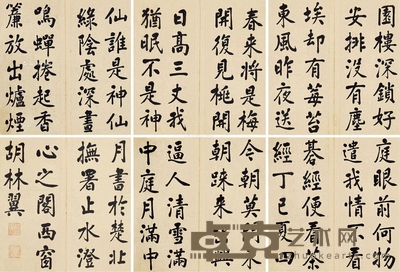 園樓深鎖好
安排沒有塵
埃却有莓苔
東風昨夜送
春來將是梅
開復見桃開
日高三丈我
猶眠不是神
仙誰是神仙
綠陰處深晝
鳴蟬捲起香
簾放出爐煙
庭眼前何物
遣我情不看
碁經便看茶
經丁巳夏四
朝莫
朝 來
逼人清雪滿
中庭月滿中
月書於楚北
撫署止水澄
心之閣西窗
胡林翼
艺术网